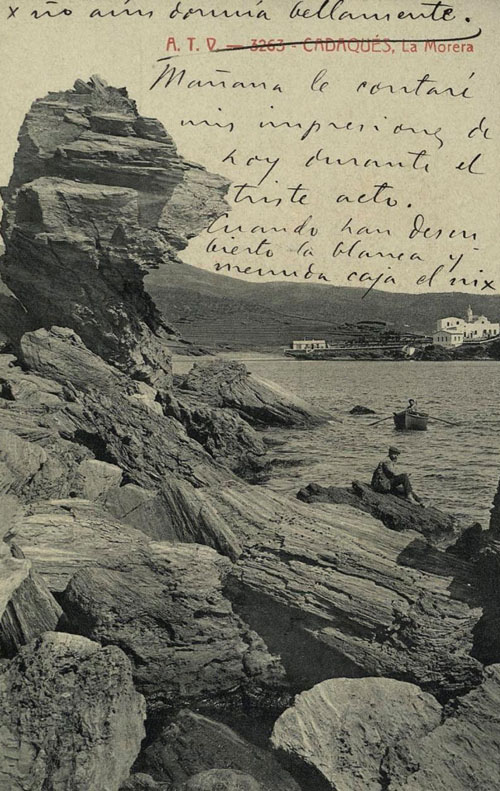 x ño aún dormía bellamente.
A. T. V. — 3263 - CADAQUÉS, La Morera
Mañana le contaré
mis impresiones de
hoy durante el
triste acto.
Cuando han descu
bierto la blanca y
menuda caja el nix